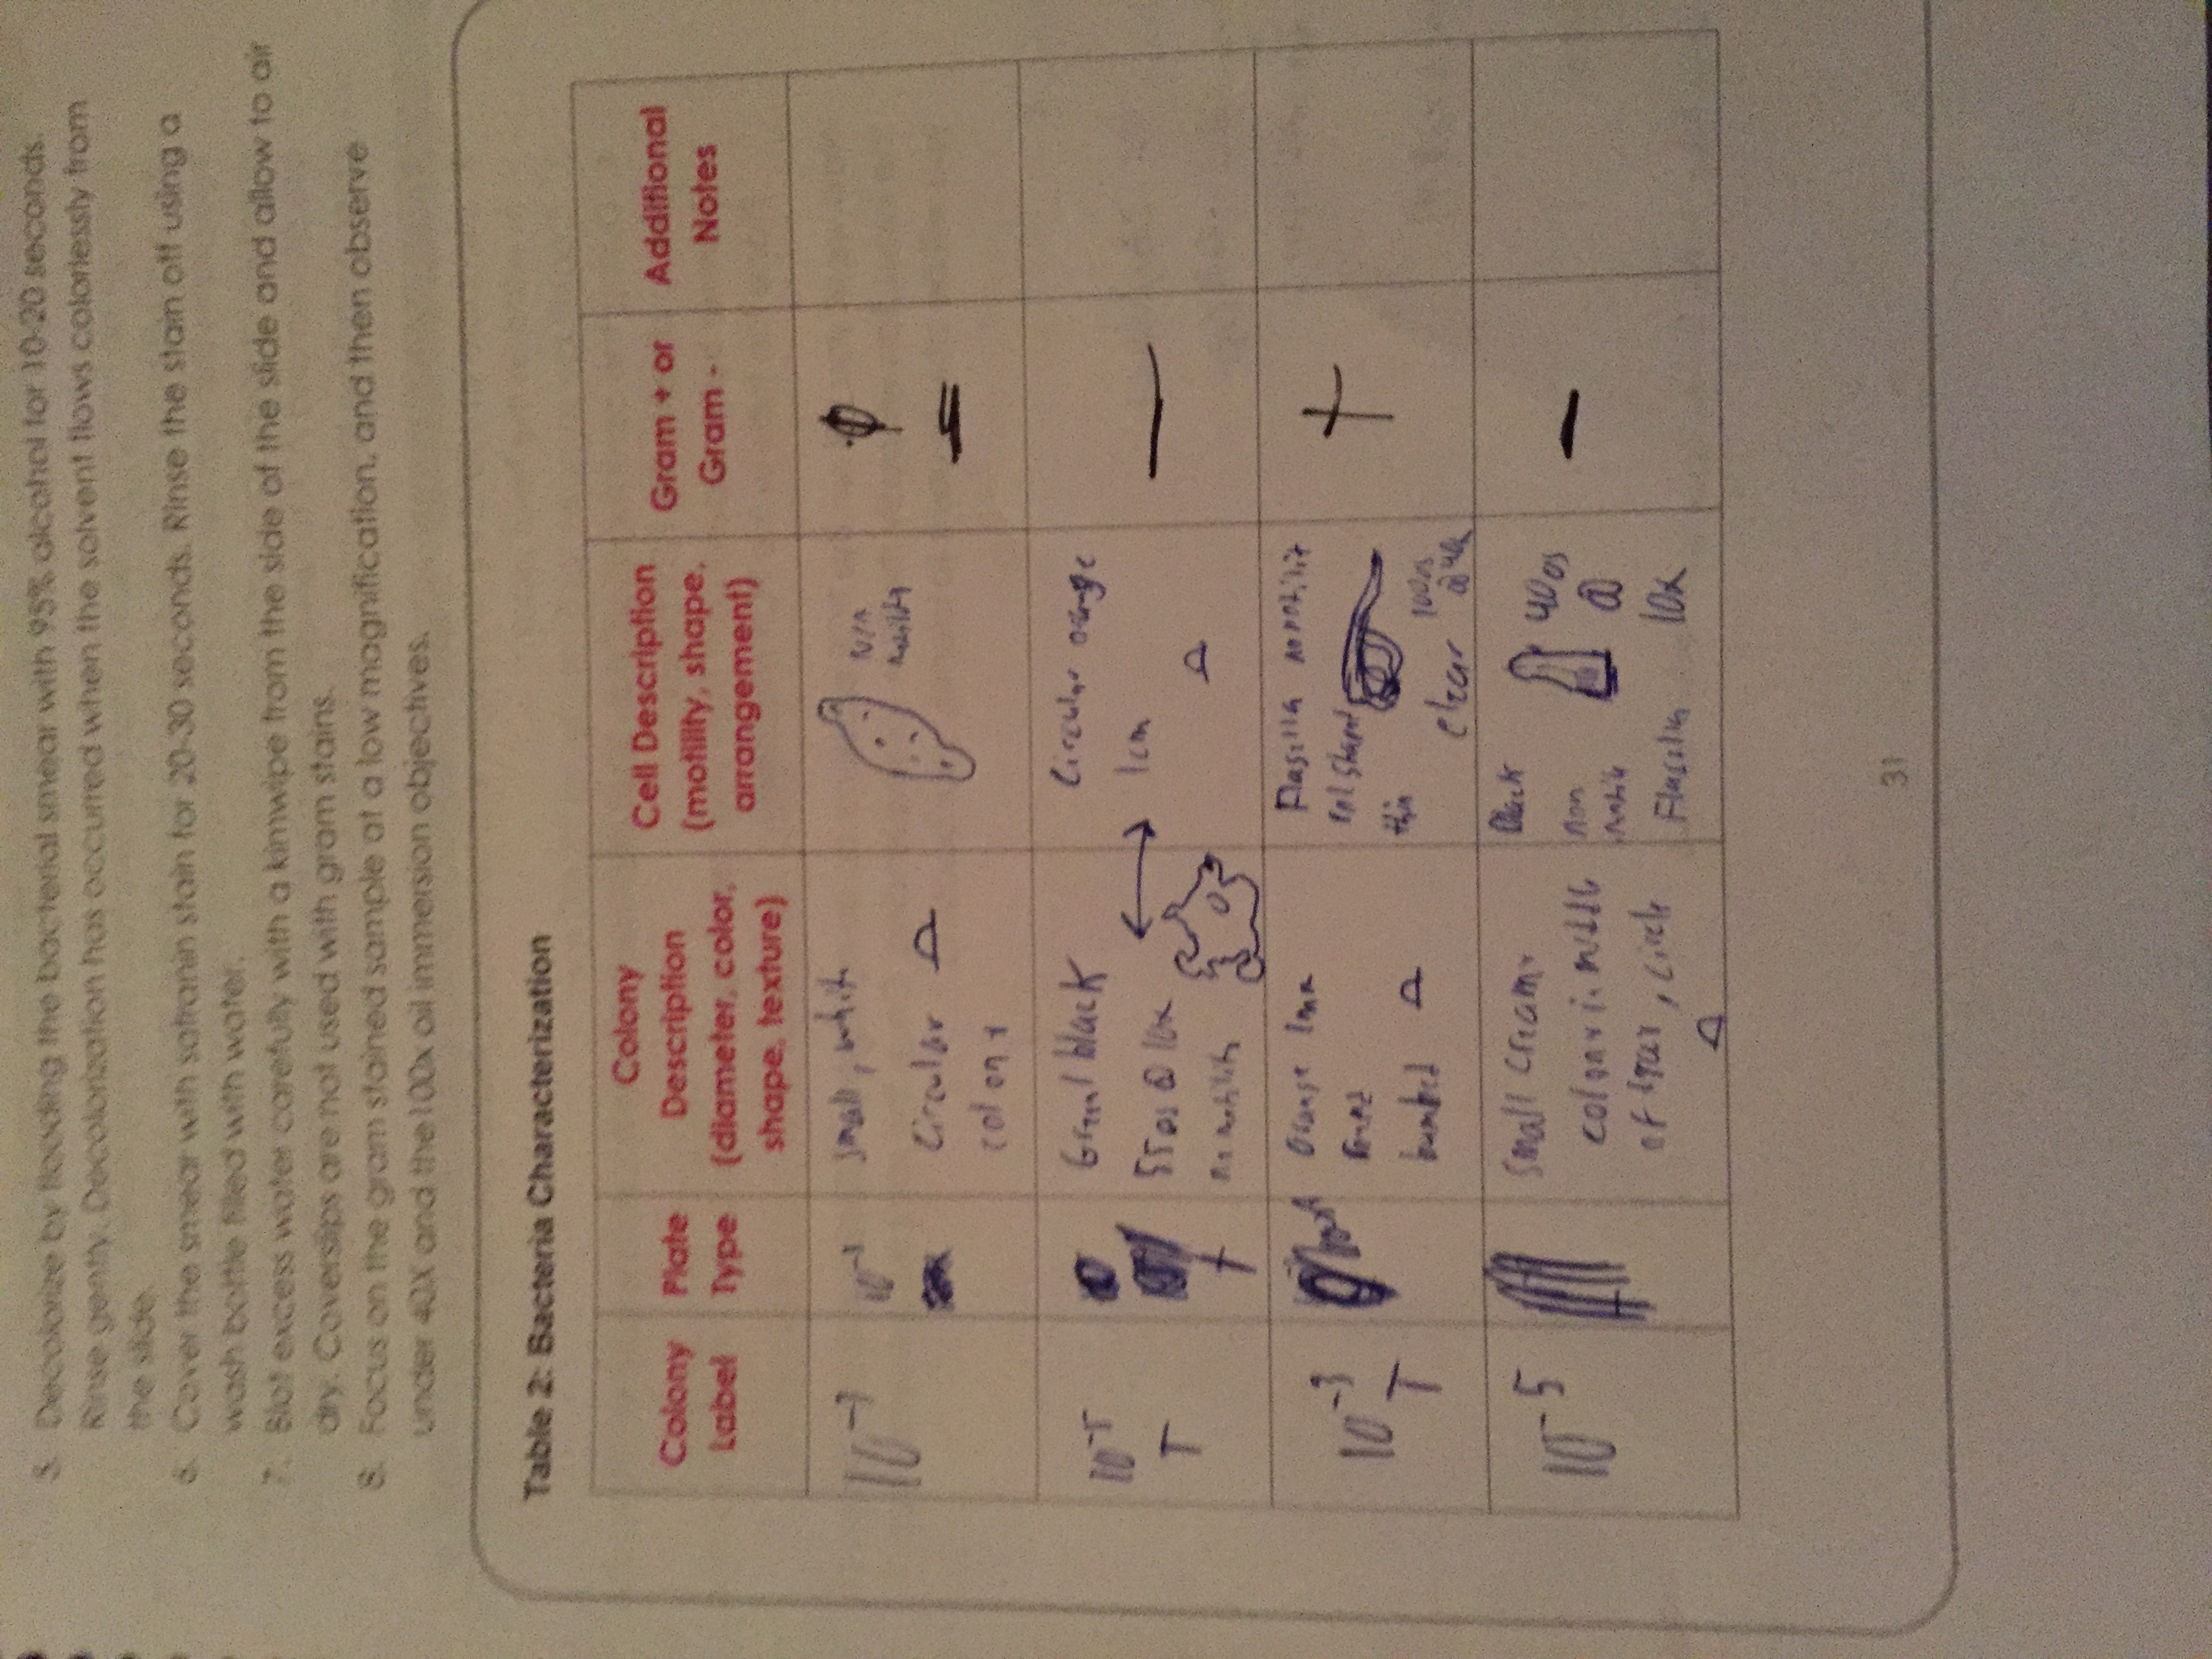 5. Decolorize by flooding the bacterial smear with 95% alcohol for 10-20 seconds.
Rinse gently. Decolorization has occurred when the solvent flows colorlessly from
the slide.
6. Cover the smear with safranin stain for 20-30 seconds. Rinse the stain off using a
wash bottle filled with water.
7. Blot excess water carefully with a kimwipe from the side of the slide and allow to air
dry. Coverslips are not used with gram stains.
8. Focus on the gram stained sample at a low magnification, and then observe
under 40X and the 100x oil immersion objectives.
Table 2: Bacteria Characterization
Colony
Label
Plate
Type
Colony
Description
(diameter, color,
shape, texture)
Cell Description
(motility, shape,
arrangement)
Gram + or
Gram -
Additional
Notes
small, white
Circular
colony
N/A
motility
-
10
T
black
@ 10x
Circular orange
1cm
-
10-3
T
Orange 1mm
Flagella
thin
clear
+
10-5
Small creamy
colony in middle
of , circle
Black
non
motile
Flagella 10x
-
31